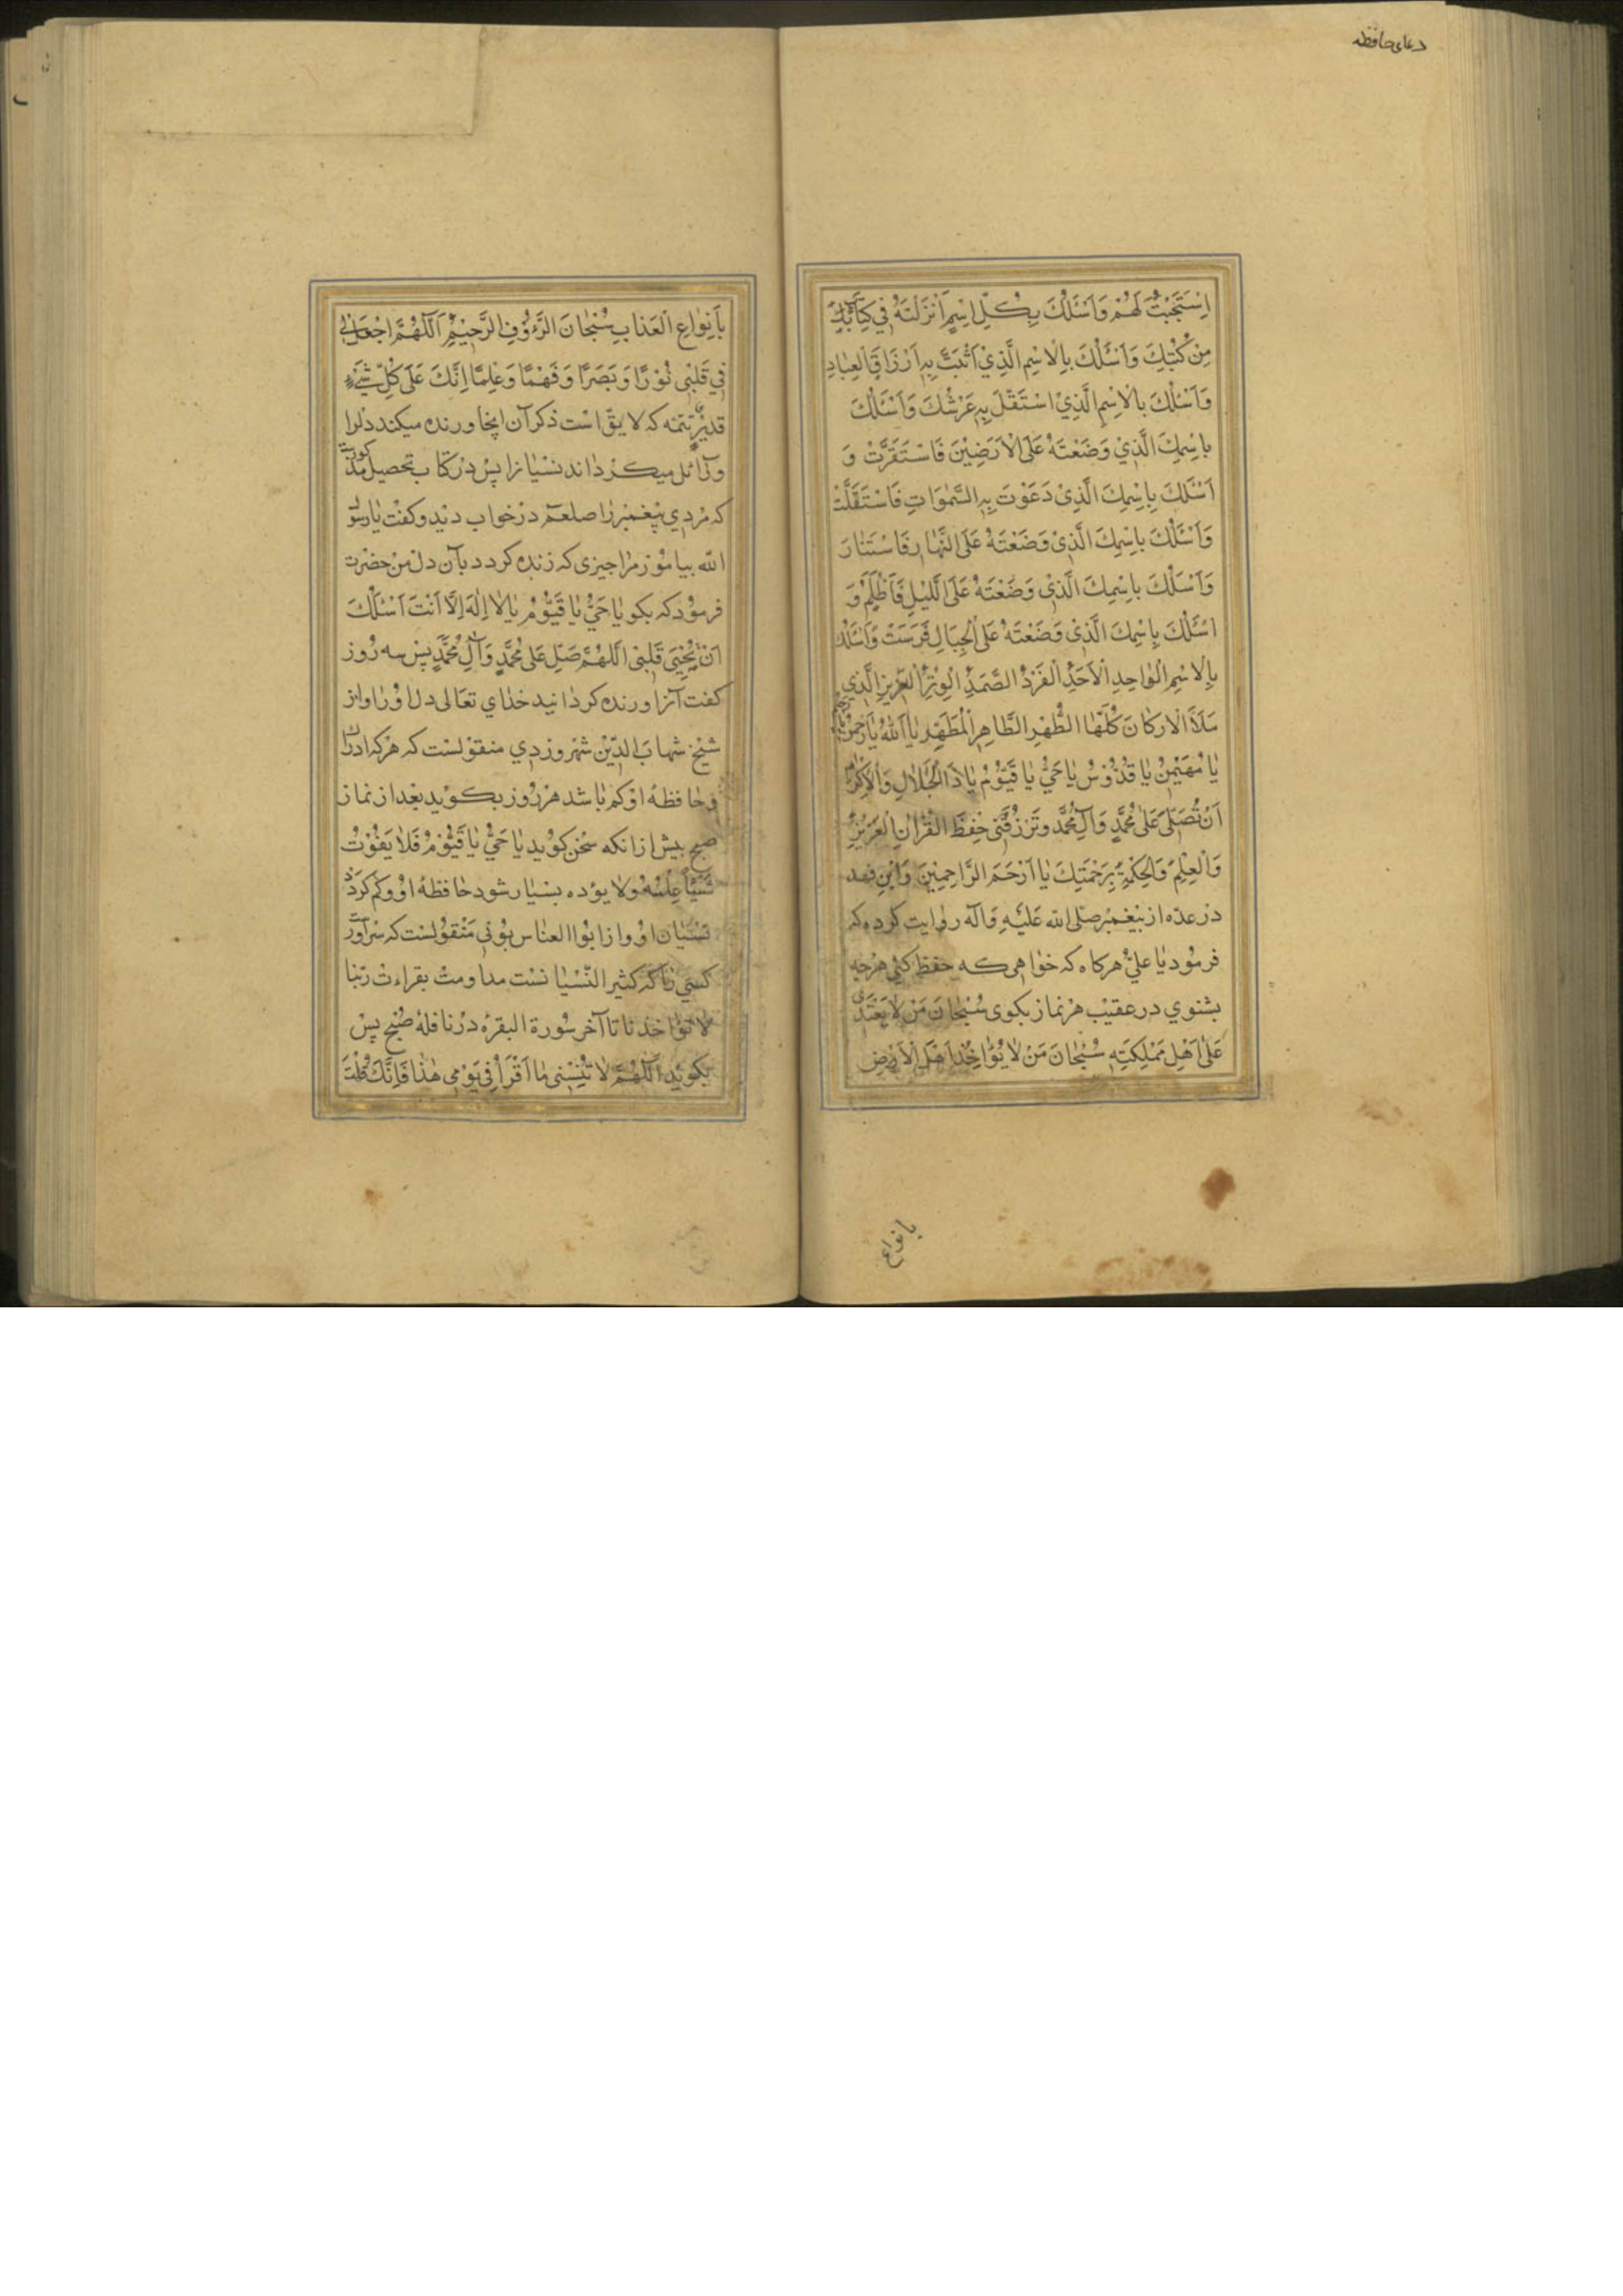 دعای حافظه
اِسْتَجَبْتَ لَهُمْ وَاَسْئَلُكَ بِكُلِّ اِسْمٍ اَنْزَلْتَهُ فِي كِتَابٍ
مِنْ كُتُبِكَ وَاَسْئَلُكَ بِالْاِسْمِ الَّذِيْ اَثْبَتَّ بِهِ اَرْزَاقَ الْعِبَادِ
وَاَسْئَلُكَ بِالْاِسْمِ الَّذِيْ اسْتَقَلَّ بِهِ عَرْشُكَ وَاَسْئَلُكَ
بِاسْمِكَ الَّذِيْ وَضَعْتَهُ عَلَى الْاَرَضِيْنَ فَاسْتَقَرَّتْ وَ
اَسْئَلُكَ بِاِسْمِكَ الَّذِيْ دَعَوْتَ بِهِ السَّمٰوَاتِ فَاسْتَقَلَّتْ
وَاَسْئَلُكَ بِاسْمِكَ الَّذِيْ وَضَعْتَهُ عَلَى النَّهَارِ فَاسْتَنَارَ
وَاَسْئَلُكَ بِاسْمِكَ الَّذِي وَضَعْتَهُ عَلَى الَّليْلِ فَاَظْلَمَ وَ
اَسْئَلُكَ بِاِسْمِكَ الَّذِيْ وَضَعْتَهُ عَلَى الْجِبَالِ فَرَسَتْ وَاَسْئَلُكَ
بِالْاِسْمِ الْوٰاحِدِ الْاَحَدِ الْفَرْدِ الصَّمَدِ الْوِتْرِ الْعَزِيزِ الَّذِي
مَلَاَ الْاَرْكَانَ كُلَّهَا الطُّهْرِ الطَّاهِرِ الْمُطَهِّرِ يَا اَللّٰهُ يَا رَحْمٰنُ
يَا مُهَيْمِنُ يَا قُدُّوْسُ يَا حَيُّ يَا قَيُّوْمُ يَا ذَا الْجَلَالِ وَالْاِكْرَامِ
اَنْ تُصَلِّيَ عَلٰى مُحَمَّدٍ وَآلِ مُحَمَّدٍ وَتَرْزُقَنِي حِفْظَ الْقُرْاٰنِ الْعَزِيْزِ
وَالْعِلْمِ وَالْحِكْمَةِ بِرَحْمَتِكَ يَا اَرْحَمَ الرَّاحِمِيْنَ وَابْنِ فهد
در عدّه از پيغمبر صلى الله عَلَيْهِ وَآله روايت كرده كه
فرمود يا علي هركاه كه خواهى كه حفظ كنى هرچه
بشنوي در عقيب هر نماز بكوى سُبْحَانَ مَنْ لَا يَعْتَدِى
عَلٰى اَهْلِ مَمْلِكَتِهِ سُبْحَانَ مَنْ لَا يُؤَاخِذُ اَهْلَ الْاَرْضِ
بانواع
بِاَنْوَاعِ الْعَذَابِ سُبْحَانَ الرَّؤُفِ الرَّحِيْمِ اَللّٰهُمَّ اجْعَلْ لِي
فِي قَلْبِي نُوْرًا وَبَصَرًا وَفَهْمًا وَعِلْمًا اِنَّكَ عَلٰى كُلِّ شَيْءٍ
قَدِيْرٌ تتمه كه لايق است ذكر آن اينجا و زنده ميكند دلرا
وزائل ميكرداند نسيانرا پس در كتاب تحصيل مذكورست
كه مردي پيغمبر را صلعم در خواب ديد وكفت يا رسول
الله بياموز مرا چيزى كه زنده كردد بآن دل من حضرت
فرمود كه بكو يَا حَيُّ يَا قَيُّوْمُ يَا لَا اِلٰهَ اِلَّا اَنْتَ اَسْئَلُكَ
اَنْ تُحْيِيَ قَلْبِي اَللّٰهُمَّ صَلِّ عَلٰى مُحَمَّدٍ وَآلِ مُحَمَّدٍ پس سه روز
كفت آنرا و زنده كردانيد خداي تعالى دل اورا و از
شيخ شهاب الدّين شهروردي منقولست كه هركه ادراك
وحافظه او كم باشد هر روز بكويد بعد از نماز
صبح پيش از انكه سخن كويد يَا حَيُّ يَا قَيُّوْمُ فَلَا يَفُوْتُ
شَيْئاً عِلْمُهُ وَلَا يؤده بسيار شود حافظهٔ او وكم كردد
نسيان او و از ابوا العباس بونى منقولست كه
كسى را كه كثير النّسيانست مداومت بقراءت ربّنا
لا تؤاخذنا تا آخر سورة البقره در نافلهٔ صبح پس
بكويد اَللّٰهُمَّ لَا تُنْسِنِي مَا اَقْرَأُ فِي يَوْمِي هٰذَا فَاِنَّكَ قُلْتَ